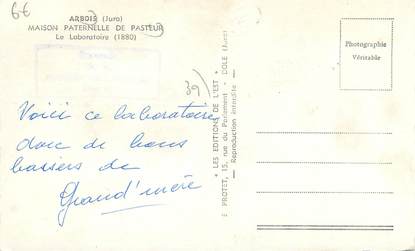 6€
ARBOIS (Jura)
MAISON PATERNELLE DE PASTEUR
Le Laboratoire (1880)
39)
Voici ce laboratoire
donc de bons
baisers de
Grand'mère
* LES EDITIONS DE L'EST *
PROTET, 15, rue du Parlement - DOLE (Jura)
— Reproduction interdite —
Photographie
Véritable